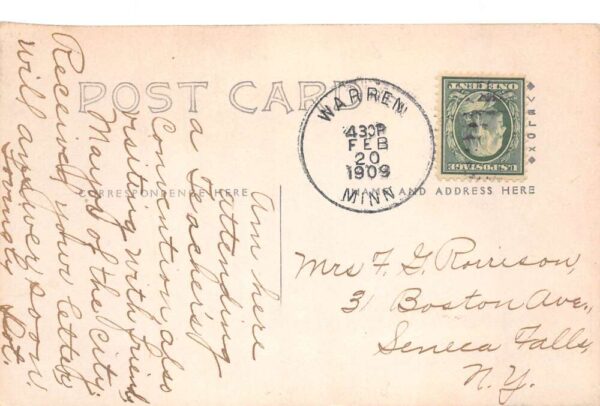 POST CARD
WARREN
430P
FEB
20
1909
MINN
ONE CENT
U.S. POSTAGE
CORRESPONDENCE HERE
NAME AND ADDRESS HERE
VELOX
Am here
attending
a Teacher's
Convention also
visiting with friend
Mayor of the City.
Received your letter
will answer soon.
Lovingly
Dot.
Mrs F. G.
3 Boston Ave.,
Seneca Falls,
N.Y.